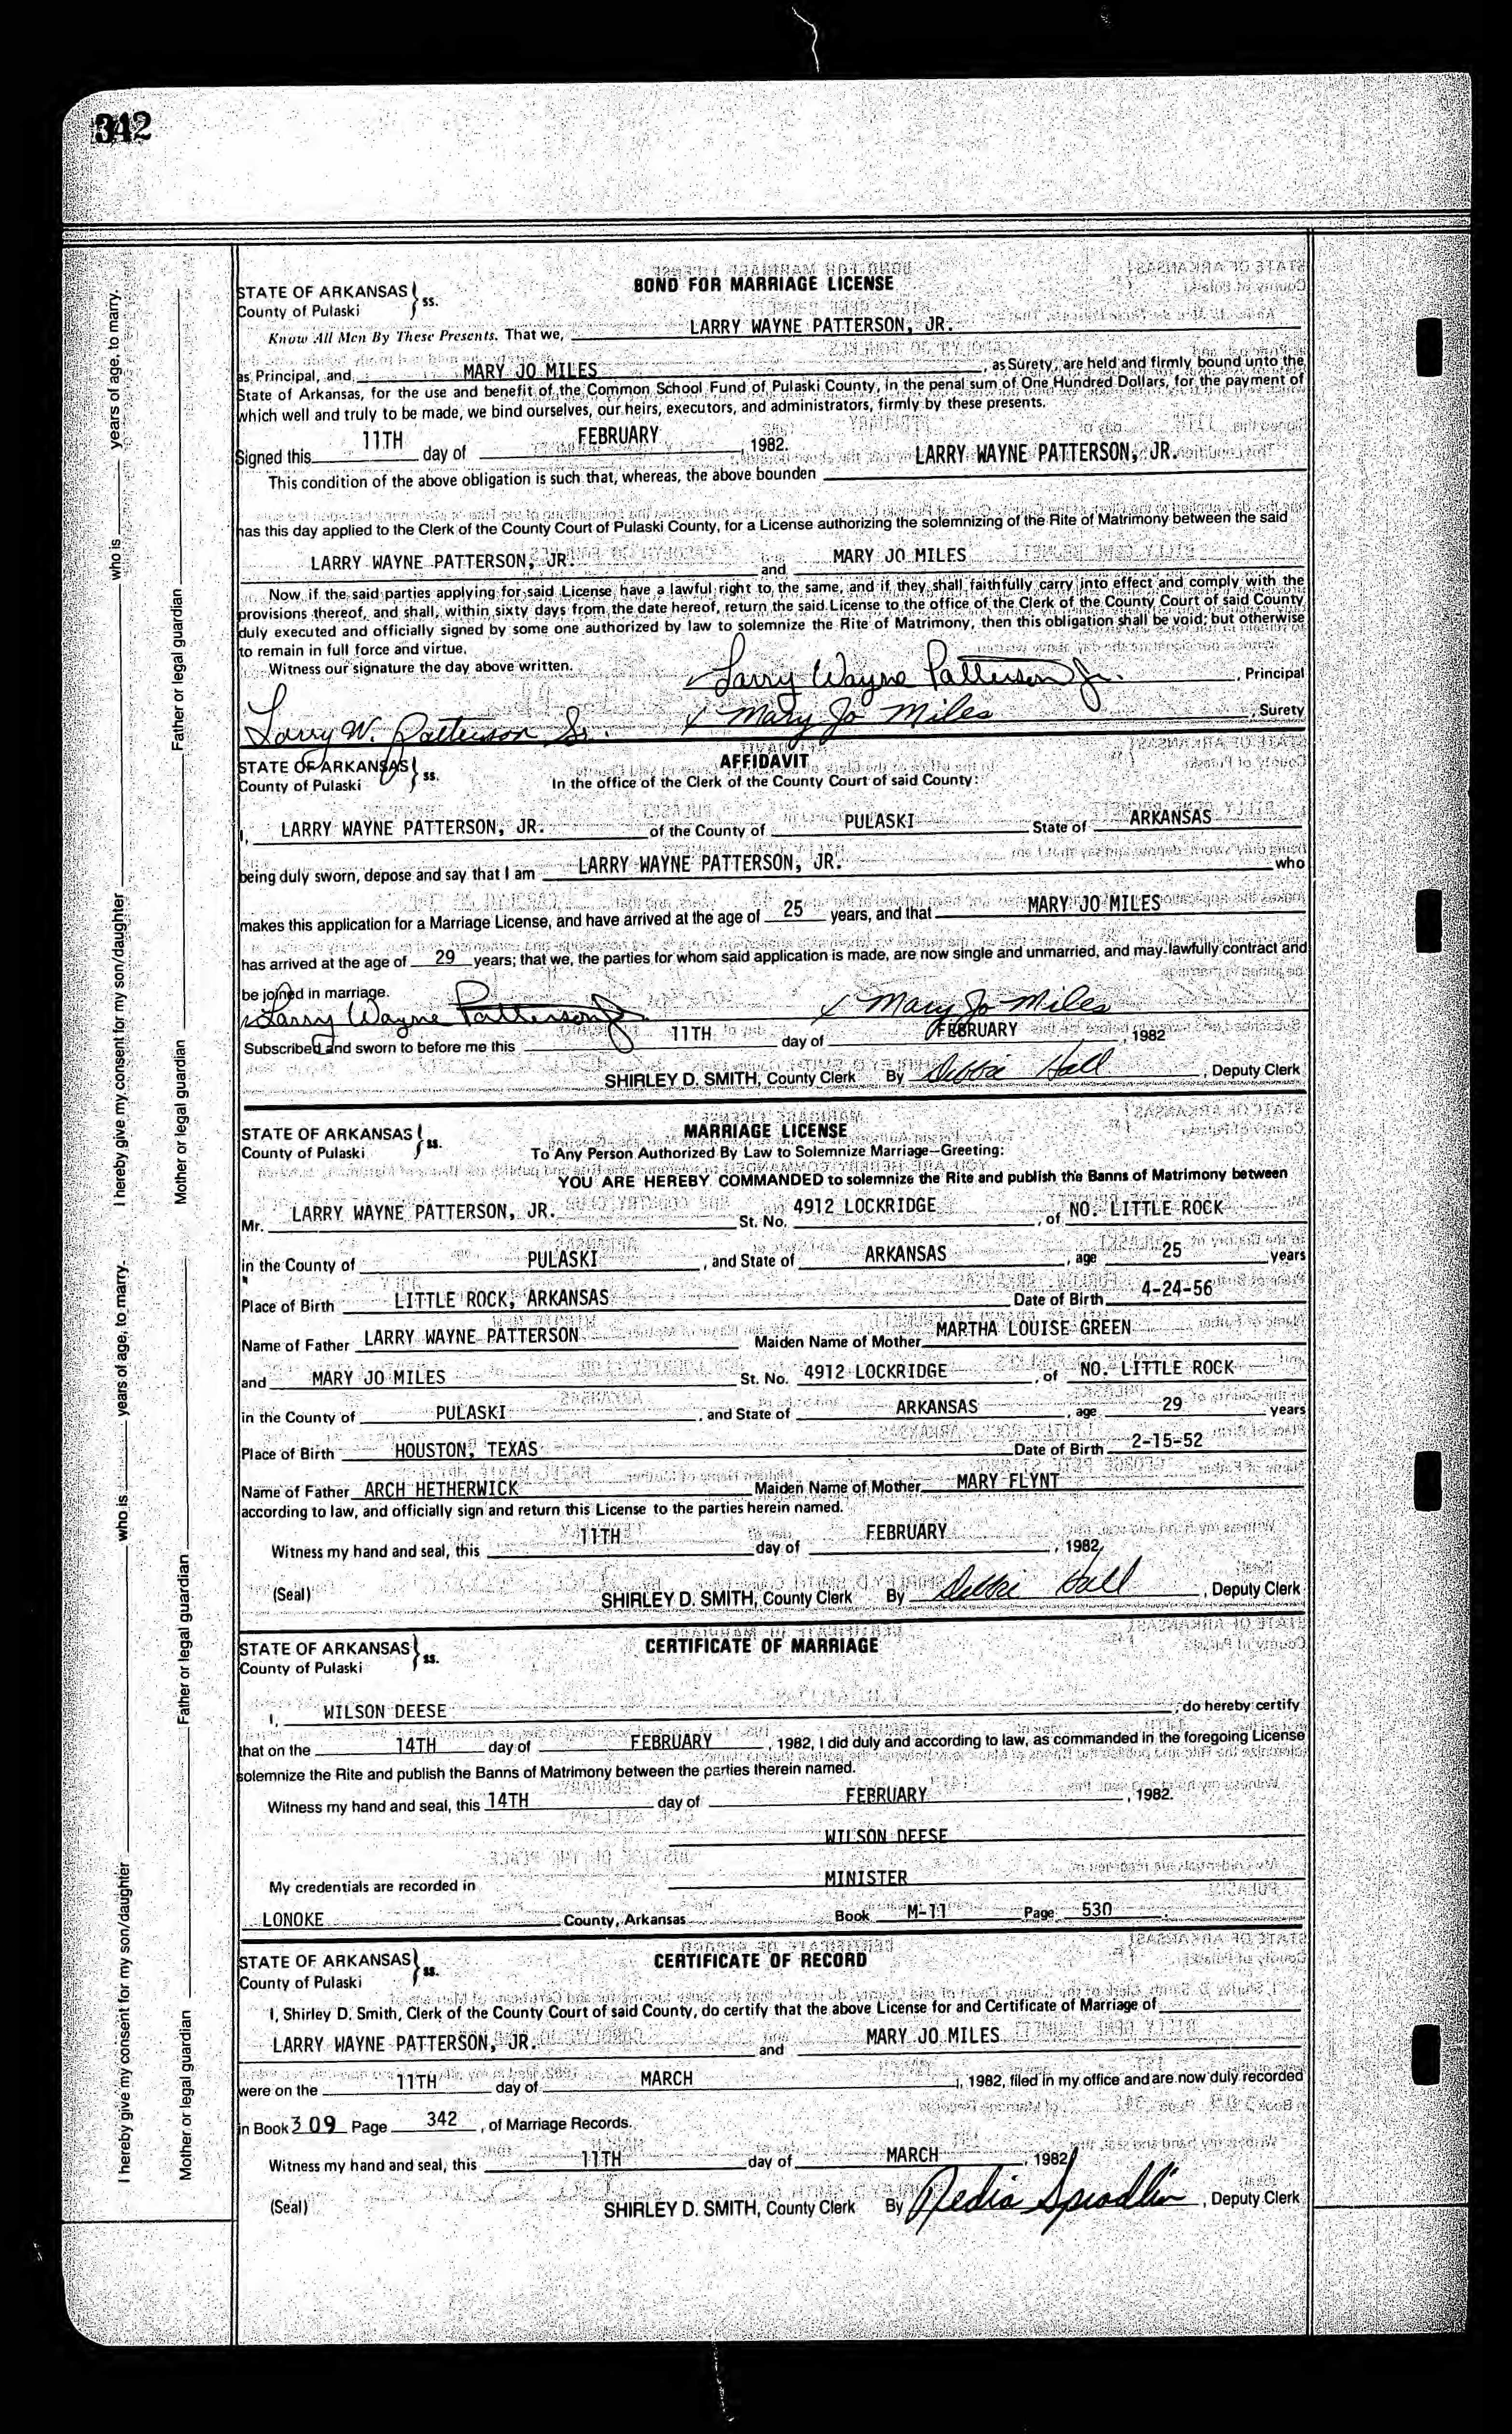 342
BOND FOR MARRIAGE LICENSE
STATE OF ARKANSAS } ss.
County of Pulaski
Know All Men By These Presents, That we, LARRY WAYNE PATTERSON, JR.
as Principal, and MARY JO MILES, as Surety, are held and firmly bound unto the
State of Arkansas, for the use and benefit of the Common School Fund of Pulaski County, in the penal sum of One Hundred Dollars, for the payment of
which well and truly to be made, we bind ourselves, our heirs, executors, and administrators, firmly by these presents.
Signed this 11TH day of FEBRUARY, 1982.
This condition of the above obligation is such that, whereas, the above bounden LARRY WAYNE PATTERSON, JR.
has this day applied to the Clerk of the County Court of Pulaski County, for a License authorizing the solemnizing of the Rite of Matrimony between the said
LARRY WAYNE PATTERSON, JR. and MARY JO MILES
Now if the said parties applying for said License have a lawful right to the same, and if they shall faithfully carry into effect and comply with the
provisions thereof, and shall, within sixty days from the date hereof, return the said License to the office of the Clerk of the County Court of said County
duly executed and officially signed by some one authorized by law to solemnize the Rite of Matrimony, then this obligation shall be void; but otherwise
to remain in full force and virtue.
Witness our signature the day above written.
Larry Wayne Patterson Jr., Principal
Larry W. Patterson Sr. Mary Jo Miles, Surety
AFFIDAVIT
STATE OF ARKANSAS } ss.
County of Pulaski
In the office of the Clerk of the County Court of said County:
I, LARRY WAYNE PATTERSON, JR. of the County of PULASKI State of ARKANSAS
being duly sworn, depose and say that I am LARRY WAYNE PATTERSON, JR. who
makes this application for a Marriage License, and have arrived at the age of 25 years, and that MARY JO MILES
has arrived at the age of 29 years; that we, the parties for whom said application is made, are now single and unmarried, and may lawfully contract and
be joined in marriage.
Larry Wayne Patterson Jr. Mary Jo Miles
Subscribed and sworn to before me this 11TH day of FEBRUARY, 1982
SHIRLEY D. SMITH, County Clerk By Debbie Hall, Deputy Clerk
MARRIAGE LICENSE
STATE OF ARKANSAS } ss.
County of Pulaski
To Any Person Authorized By Law to Solemnize Marriage—Greeting:
YOU ARE HEREBY COMMANDED to solemnize the Rite and publish the Banns of Matrimony between
Mr. LARRY WAYNE PATTERSON, JR. St. No. 4912 LOCKRIDGE, of NO. LITTLE ROCK
in the County of PULASKI, and State of ARKANSAS, age 25 years
Place of Birth LITTLE ROCK, ARKANSAS Date of Birth 4-24-56
Name of Father LARRY WAYNE PATTERSON Maiden Name of Mother MARTHA LOUISE GREEN
and MARY JO MILES St. No. 4912 LOCKRIDGE, of NO. LITTLE ROCK
in the County of PULASKI, and State of ARKANSAS, age 29 years
Place of Birth HOUSTON, TEXAS Date of Birth 2-15-52
Name of Father ARCH HETHERWICK Maiden Name of Mother MARY FLYNT
according to law, and officially sign and return this License to the parties herein named.
Witness my hand and seal, this 11TH day of FEBRUARY, 1982
(Seal) SHIRLEY D. SMITH, County Clerk By Debbie Hall, Deputy Clerk
CERTIFICATE OF MARRIAGE
STATE OF ARKANSAS } ss.
County of Pulaski
I, WILSON DEESE, do hereby certify
that on the 14TH day of FEBRUARY, 1982, I did duly and according to law, as commanded in the foregoing License
solemnize the Rite and publish the Banns of Matrimony between the parties therein named.
Witness my hand and seal, this 14TH day of FEBRUARY, 1982.
WILSON DEESE
My credentials are recorded in MINISTER
LONOKE County, Arkansas Book M-11 Page 530.
CERTIFICATE OF RECORD
STATE OF ARKANSAS } ss.
County of Pulaski
I, Shirley D. Smith, Clerk of the County Court of said County, do certify that the above License for and Certificate of Marriage of
LARRY WAYNE PATTERSON, JR. and MARY JO MILES
were on the 11TH day of MARCH, 1982, filed in my office and are now duly recorded
in Book 309 Page 342, of Marriage Records.
Witness my hand and seal, this 11TH day of MARCH, 1982
(Seal) SHIRLEY D. SMITH, County Clerk By Redia Spradlin, Deputy Clerk
I hereby give my consent for my son/daughter who is years of age, to marry.
Mother or legal guardian Father or legal guardian
I hereby give my consent for my son/daughter who is years of age, to marry.
Mother or legal guardian Father or legal guardian